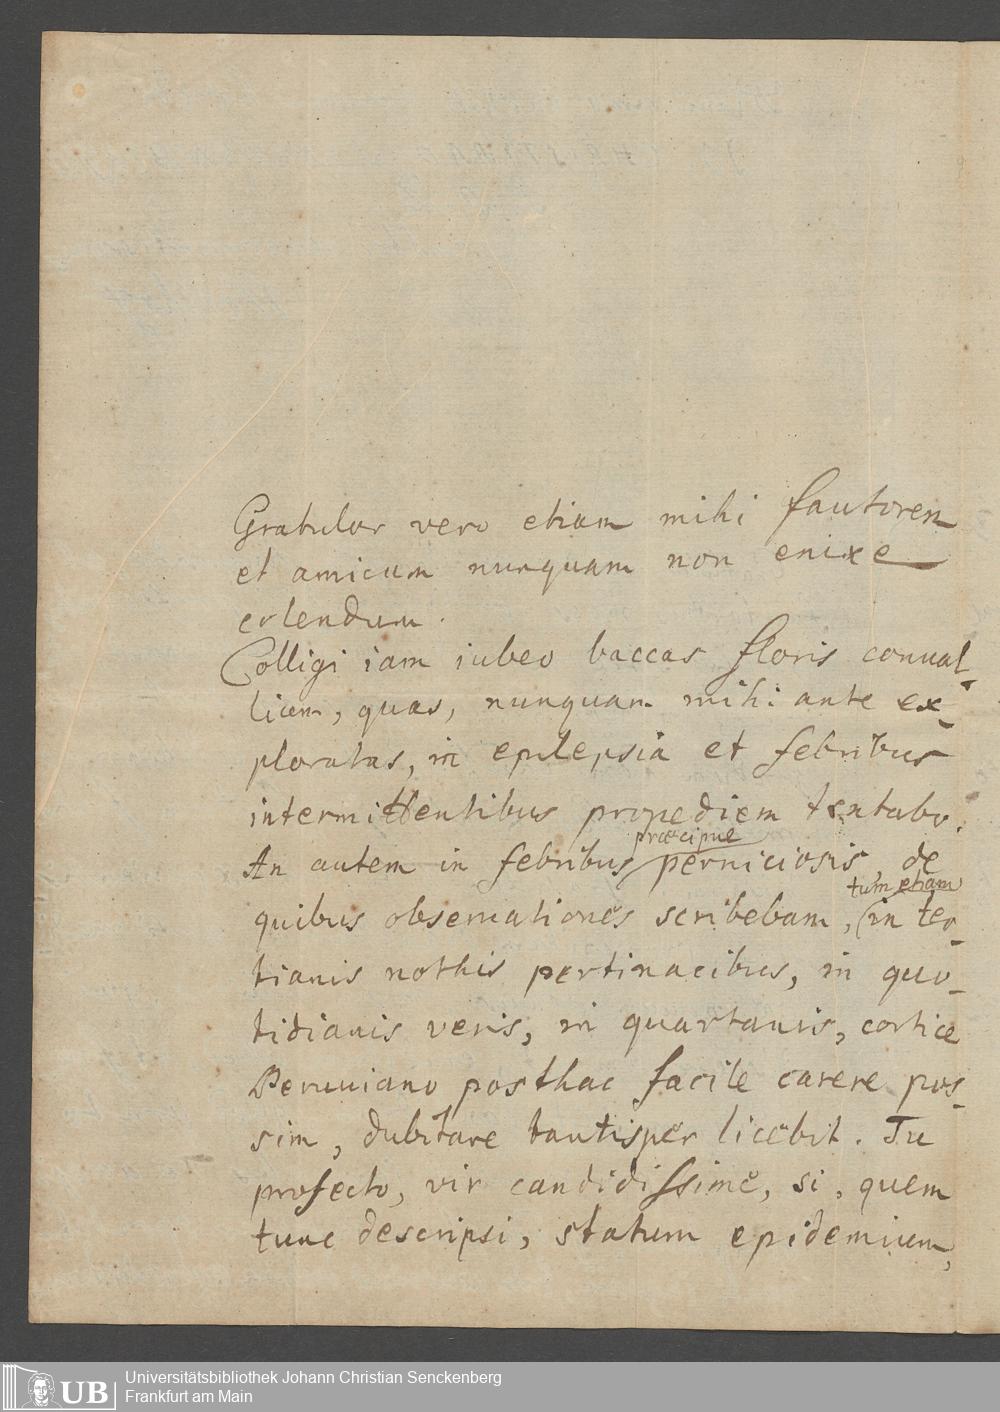 Gratulor vero etiam mihi fautorem
et amicum nunquam non enixe
colendum.
Colligi iam iubeo baccas floris conval-
lium, quas, nunquam mihi ante ex-
ploratas, in epilepsia et febribus
intermittentibus propediem tentabo.
An autem in febribus praecipue perniciosis, de
quibus observationes scribebam, tum etiam in ter-
tianis nothis pertinacibus, in quo-
tidianis veris, in quartanis, cortice
Peruuiano posthac facile carere pos-
sim, dubitare tantisper licebit. Tu
profecto, vir candidissime, si, quem
tunc descripsi, statum epidemium,
UB
Universitätsbibliothek Johann Christian Senckenberg
Frankfurt am Main